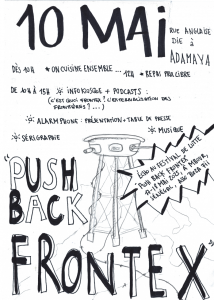 10 MAI
RUE ANGLAISE
DIE À
ADAMAVA
DÈS 10H * ON CUISINE ENSEMBLE ... 12H * REPAS PRIX LIBRE
DE 10H À 15H * INFOKIOSQUE + PODCASTS :
(C'EST QUOI FRONTEX ? L'EXTERNALISATION DES
FRONTIÈRES ? ...)
* ALARM PHONE : PRÉSENTATION + TABLE DE PRESSE
* SÉRIGRAPHIE
* MUSIQUE
"PUSH
BACK
FRONTEX"
ÉCHO AU FESTIVAL DE LUTTE
PUSH BACK FRONTEX
MAI 2025, À
SÉNÉGAL, AVEC BOZA FII